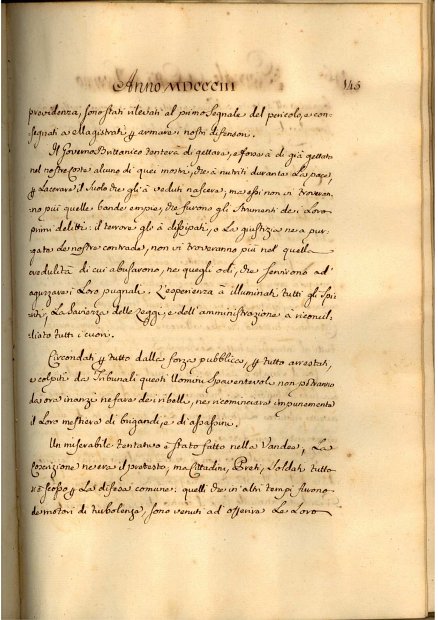 Anno MDCCCIII 145
providenza, sono stati rilevati al primo segnale del pericolo, e con=
segnati a Magistrati ꝑ armare i nostri difensori.
Il Governo Brittanico tenterà di gettare, e forse à di già gettati
nel nostre Coste alcuno di quei mostri, che à nutriti durante La pace,
ꝑ Lacerare il Suolo che gl'à veduti nascere, ma essi non vi troveran=
no più quelle bande empie, che furono gli strumenti de i Loro
primi delitti: il terrore gli à dissipati, o La giustizia ne a pur=
gate Le nostre contrade, non vi troveranno più nel quella
credulità di cui abusarono, ne quegli odj, che servirono ad'
aguzzare i Loro pugnali. L'esperienza à illuminati tutti gli Spi=
riti, La Saviezza delle Leggi, e dell'amministrazione à riconci=
liato tutti i cuori.
Circondati ꝑ tutto dalla forza pubblica, ꝑ tutto arrestati,
e colpiti da Tribunali questi Uomini spaventevoli non potranno
da ora inanzi ne fare dei ribelli, ne ricominciare impunemente
il Loro mestiere di briganti, e di assassini.
Un miserabile tentativo è stato fatto nella Vandea, La
Coscrizione ne era il pretesto, ma Cittadini, Preti, Soldati tutto
si è scosso ꝑ La difesa comune: quelli che in altri tempi furono
de motori di turbolenza, sono venuti ad' offerire Le Loro